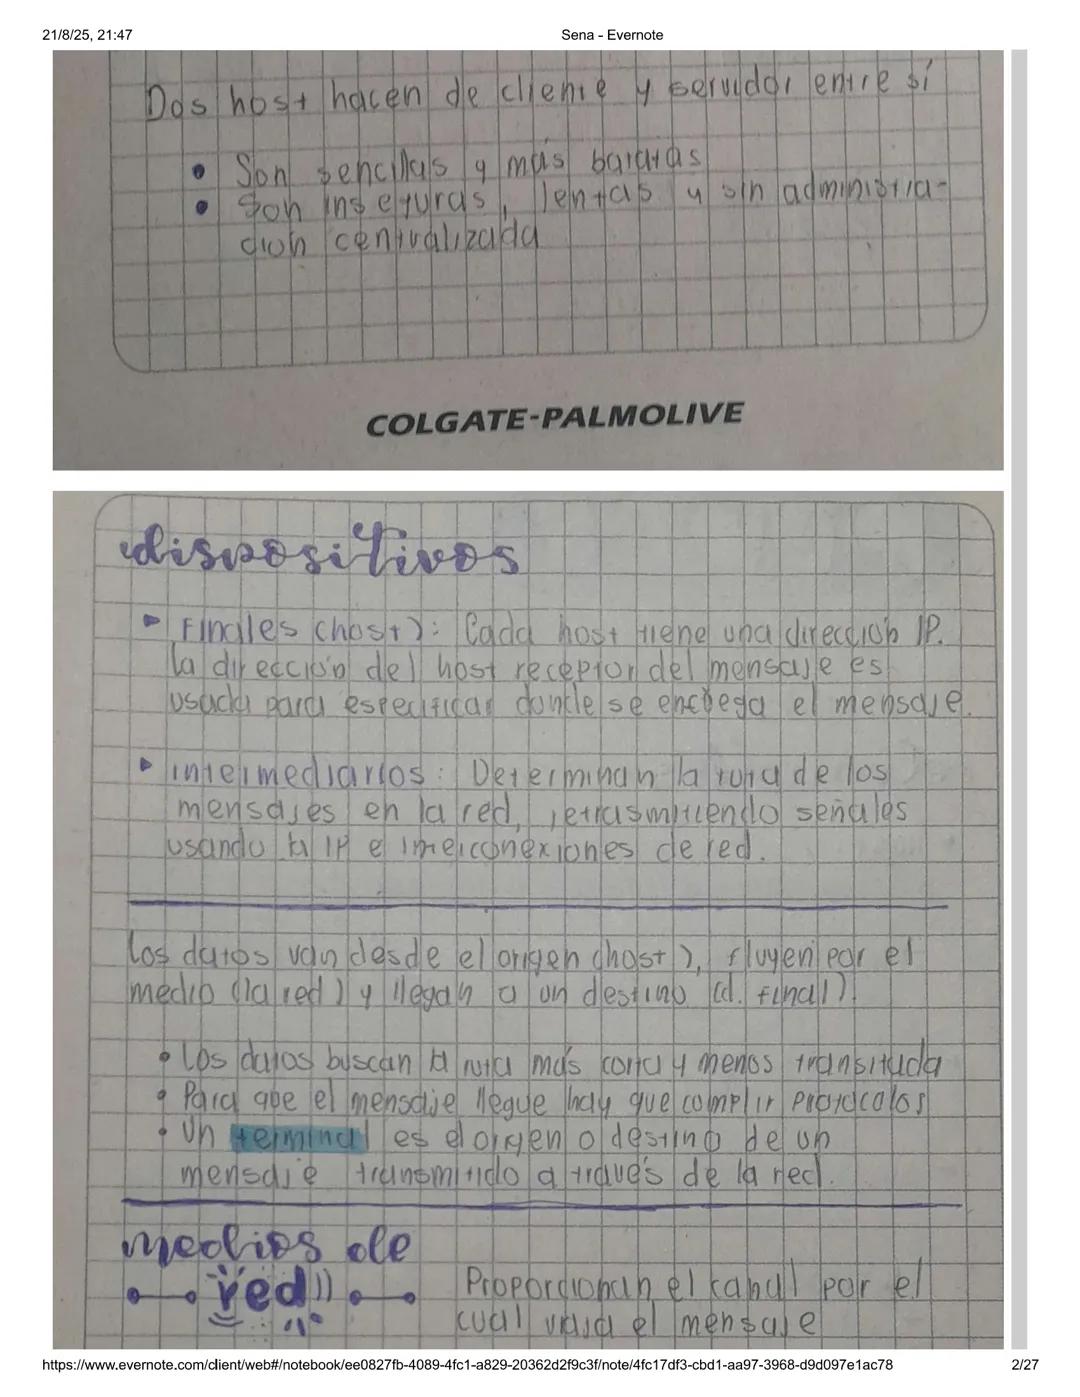 21/8/25, 21:47
Sena - Evernote
Dos host hacen de cliente y servidor entre sí
• Son sencillas y más baratas
• Son inseguras, lentas y sin administra-
ción centralizada
COLGATE-PALMOLIVE
dispositivos
▸ Finales (host): Cada host tiene una dirección IP.
la dirección del host receptor del mensaje es
usada para especificar donde se entrega el mensaje.
▸ intermediarios: Determinan la ruta de los
mensajes en la red, retrasmitiendo señales
usando la IP e interconexiones de red.
los datos van desde el origen (host), fluyen por el
medio (la red) y llegan a un destino (d. final).
• los datos buscan la ruta más corta y menos transitada
• Para que el mensaje llegue hay que complir protocolos
• Un terminal es el origen o destino de un
mensaje transmitido a través de la red.
medios de
red
Proporcionan el canal por el
cual viaja el mensaje
https://www.evernote.com/client/web#/notebook/ee0827fb-4089-4fc1-a829-20362d2f9c3f/note/4fc17df3-cbd1-aa97-3968-d9d097e1ac78
2/27